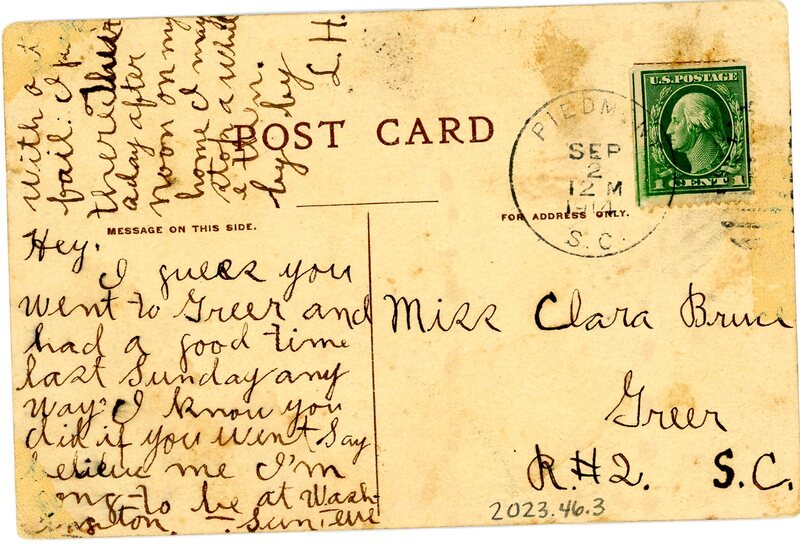 POST CARD
MESSAGE ON THIS SIDE.
FOR ADDRESS ONLY.
U.S. POSTAGE
1 CENT 1
PIEDM
SEP
2
12 M
1914
S.C.
Hey.
I guess you
went to Greer and
had a good time
last Sunday any
way I know you
did if you went Say
me I'm
to be at Wash-
Sun eve
with
fail. I
there
aday after
noon on my
home I may
stop a whil
e then.
by by
L.H.
Miss Clara Bruce
Greer
R.#2. S.C.
2023.46.3